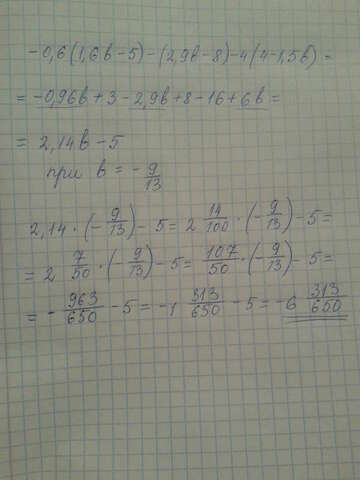 -0,6(1,6в-5)-(2,9в-8)-4(4-1,5в)=
=-0,96в+3-2,9в+8-16+6в=
=2,14в-5
при в=-9/13
2,14·(-9/13)-5=2 14/100·(-9/13)-5=
=2 7/50·(-9/13)-5=107/50·(-9/13)-5=
=-963/650-5=-1 313/650-5=-6 313/650